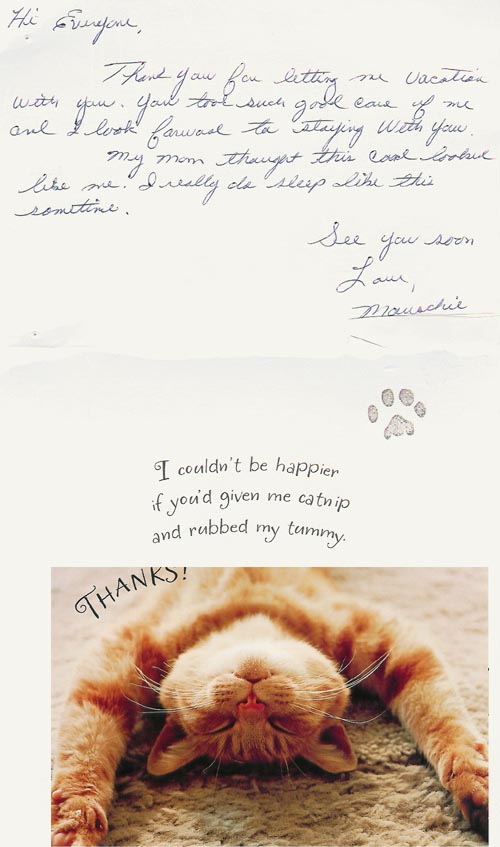 Hi Everyone,
Thank you for letting me vacation
with you. You took such good care of me
and I look forward to staying with you.
My mom thought this card looked
like me. I really do sleep like this
sometime.
See you soon
Love,
I couldn't be happier
if you'd given me catnip
and rubbed my tummy.
THANKS!